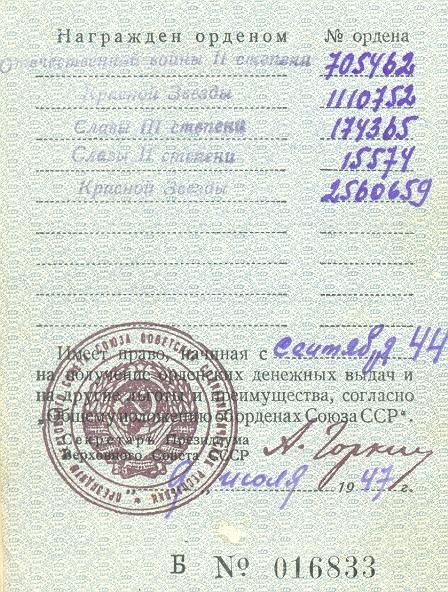 Награжден орденом № ордена
Отечественной войны II степени 705462
Красной Звезды 1110752
Славы III степени 174365
Славы II степени 15574
Красной Звезды 2560659
Имеет право, начиная с сентября 44
на получение орденских денежных выдач и
на другие льготы и преимущества, согласно
„Общему положению об орденах Союза ССР“.
Секретарь Президиума
Верховного Совета СССР А. Горкин
9 июля 1947 г.
Б № 016833